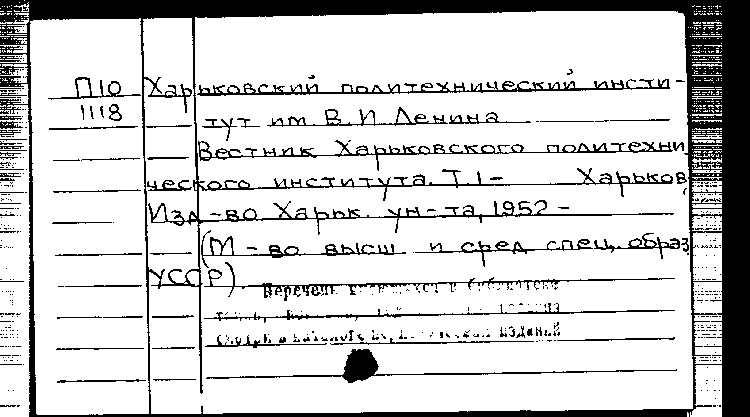 П10 Харьковский политехнический инсти-
1118 тут им В.И Ленина
Вестник Харьковского политехни
ческого института. Т.1- Харьков,
Изд-во Харьк. ун-та, 1952 -
(М-во высш и сред спец. образ
УССР).
Перечень в библиотеке
изданий